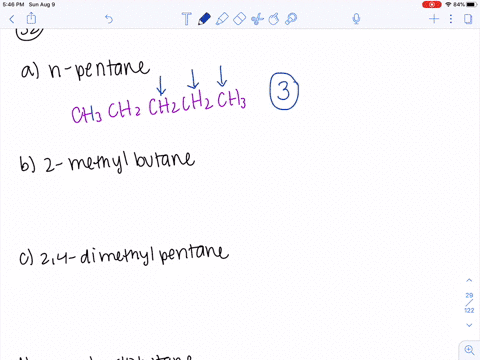 5:46 PM Sun Aug 9
84%
a) n-pentane
CH3 CH2 CH2 CH2 CH3
3
b) 2-methyl butane
c) 2,4-dimethyl pentane
29
/
122